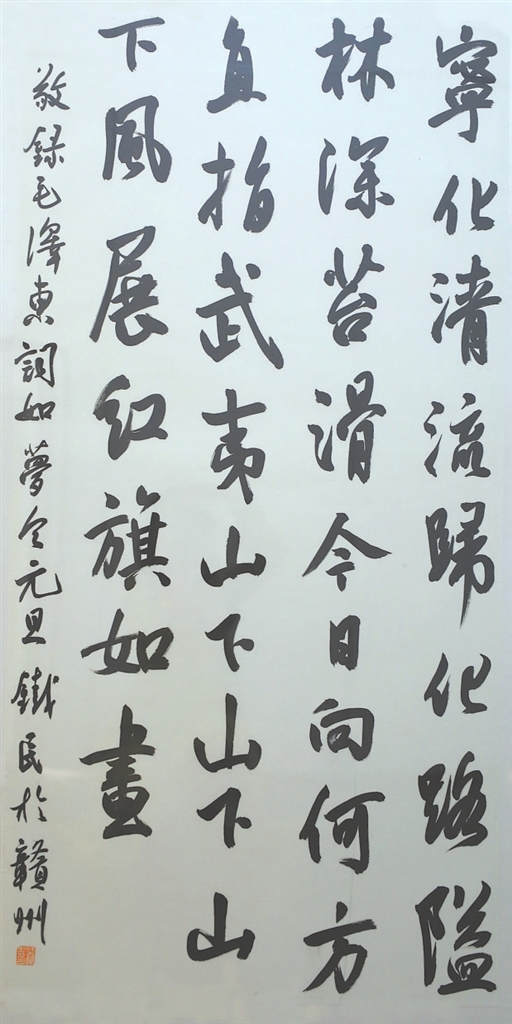 寧化清流歸化路隘
林深苔滑今日向何方
直指武夷山下山下山
下風展紅旗如畫
敬録毛澤東詞如夢令元旦鐵民於贛州